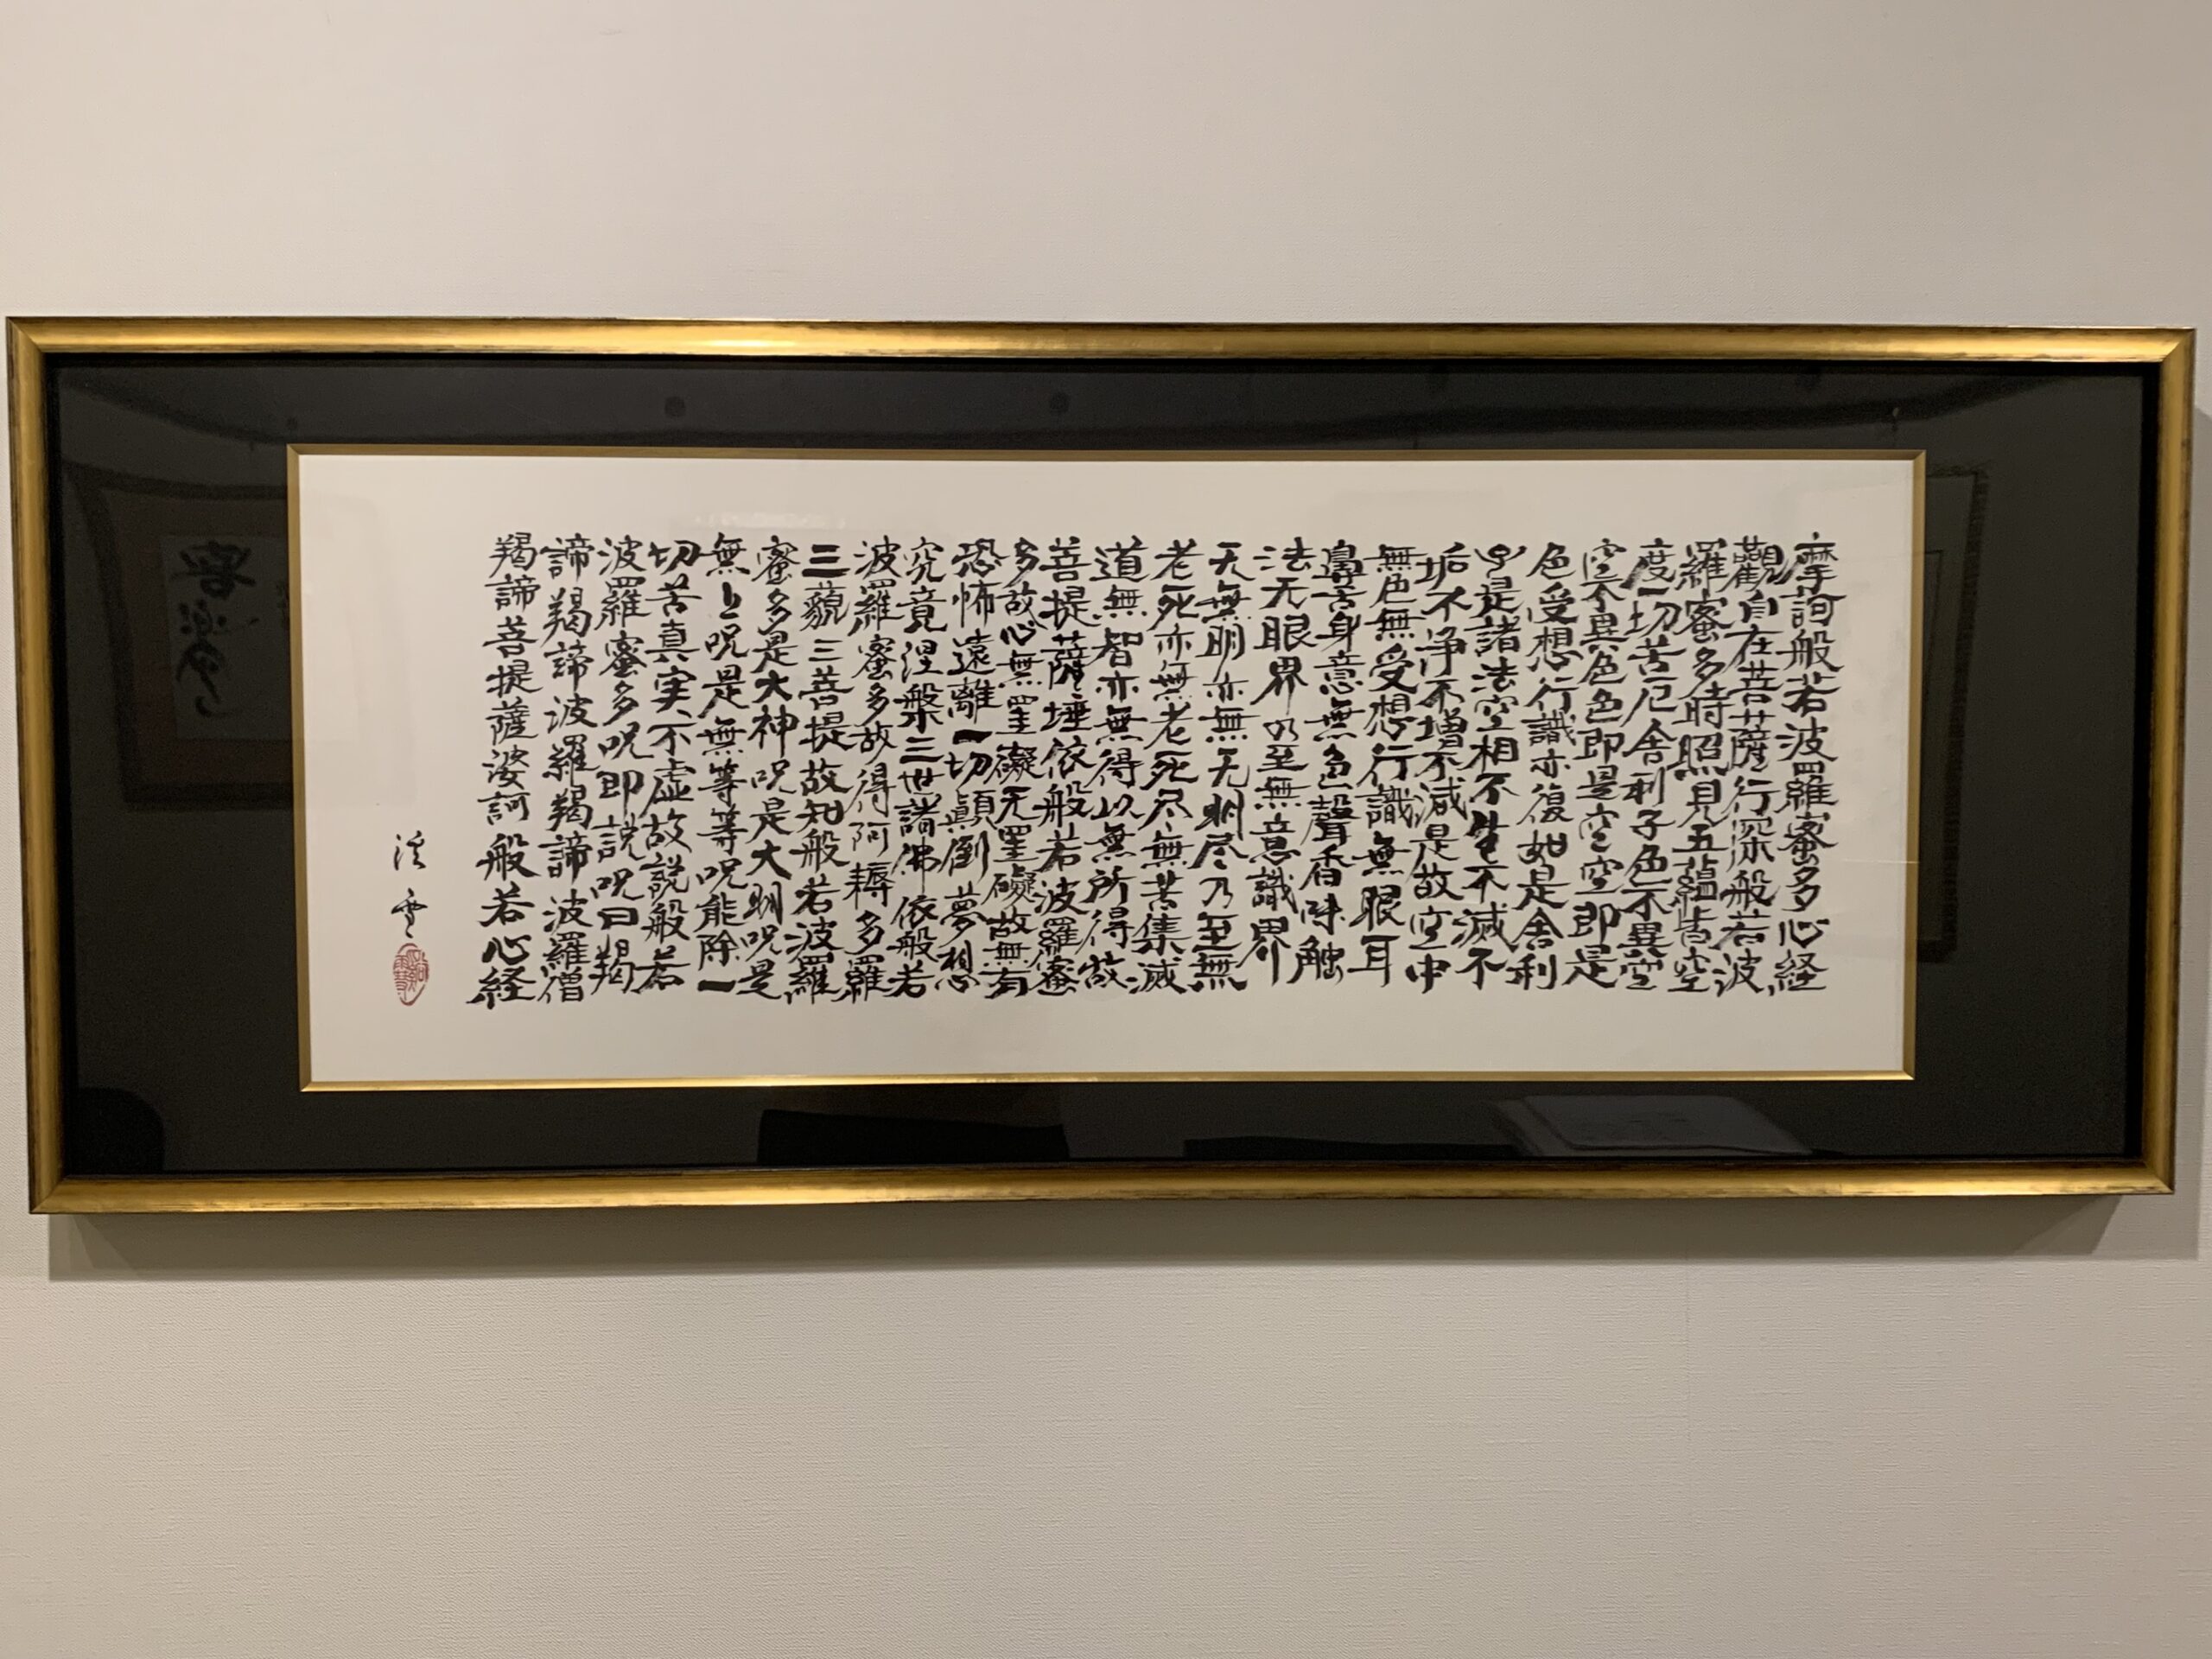 摩訶般若波羅蜜多心経
觀自在菩薩行深般若波
羅蜜多時照見五蘊皆空
度一切苦厄舎利子色不異空
空不異色色即是空空即是
色受想行識亦復如是舎利
子是諸法空相不生不滅不
垢不浄不増不減是故空中
無色無受想行識無眼耳
鼻舌身意無色聲香味触
法无眼界乃至無意識界
无無明亦無无明尽乃至無
老死亦無老死尽無苦集滅
道無智亦無得以無所得故
菩提薩埵依般若波羅蜜
多故心無罣礙无罣礙故無有
恐怖遠離一切顛倒夢想
究竟涅槃三世諸佛依般若
波羅蜜多故得阿耨多羅
三藐三菩提故知般若波羅
蜜多是大神呪是大明呪是
無上呪是無等等呪能除一
切苦真実不虚故説般若
波羅蜜多呪即説呪曰羯
諦羯諦波羅羯諦波羅僧
羯諦菩提薩婆訶般若心経
渓雲